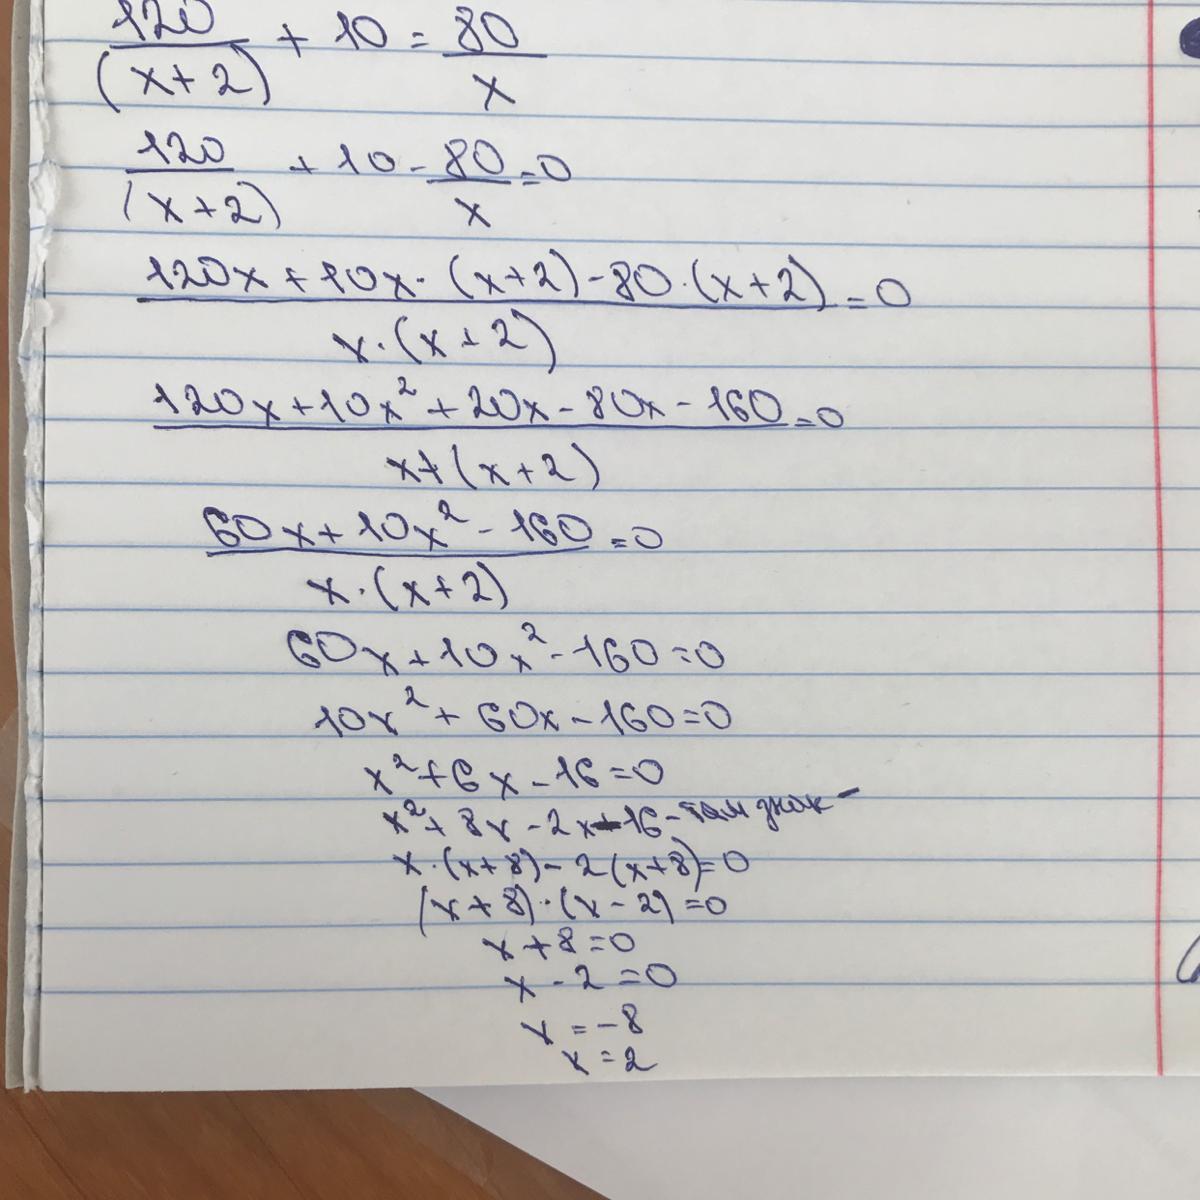 120/(x+2) + 10 = 80/x
120/(x+2) + 10 - 80/x = 0
(120x + 10x · (x+2) - 80 · (x+2))/(x · (x+2)) = 0
(120x + 10x² + 20x - 80x - 160)/(x · (x+2)) = 0
(60x + 10x² - 160)/(x · (x+2)) = 0
60x + 10x² - 160 = 0
10x² + 60x - 160 = 0
x² + 6x - 16 = 0
x² + 8x - 2x - 16 - там знак -
x · (x+8) - 2(x+8) = 0
(x+8) · (x-2) = 0
x + 8 = 0
x - 2 = 0
x = -8
x = 2